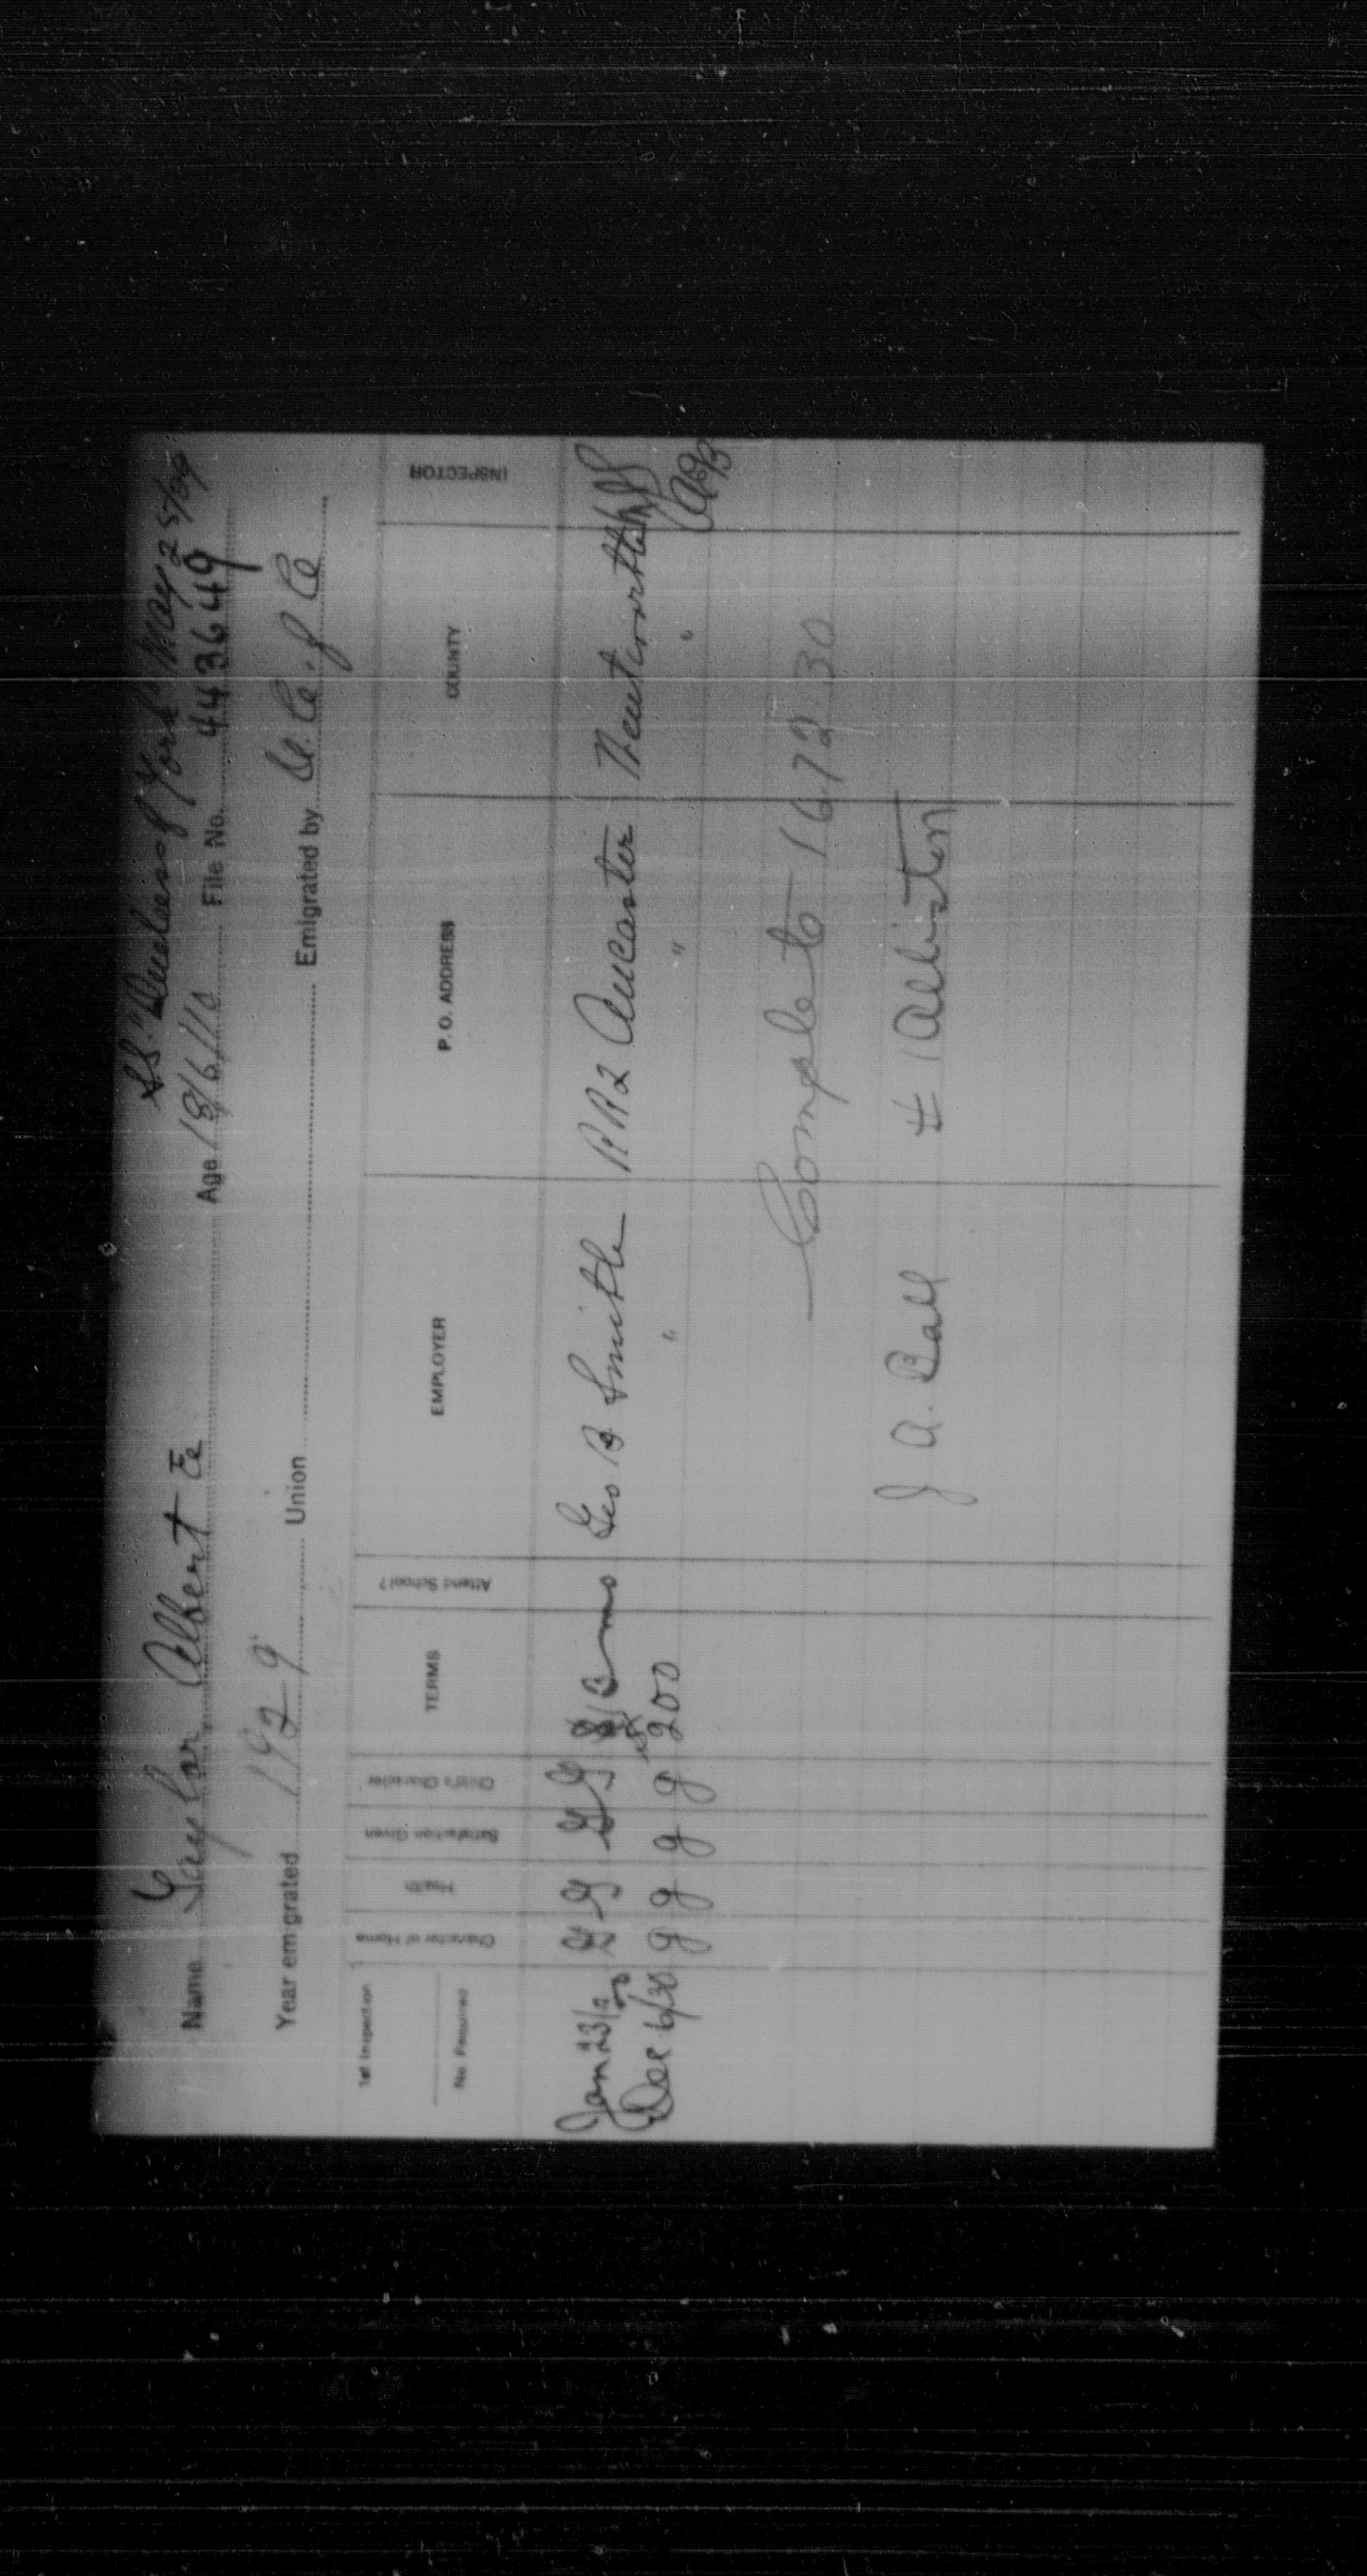 S.S. "Duchess of York" May 25/29
Name Taylor Albert E Age 18/6/10 File No. 443649
Year emigrated 1929 Union Emigrated by
1st Inspection
No. Required
Character of Home Health Satisfaction Given Child's Character TERMS Attend School? EMPLOYER P. O. ADDRESS COUNTY INSPECTOR
Jan 23/30 G G G G Geo B Smith RR2 Ancaster Wentworth
Dec 6/30 g g g g 200 " " "
Complete 16.12.30
J A. Ball Alliston